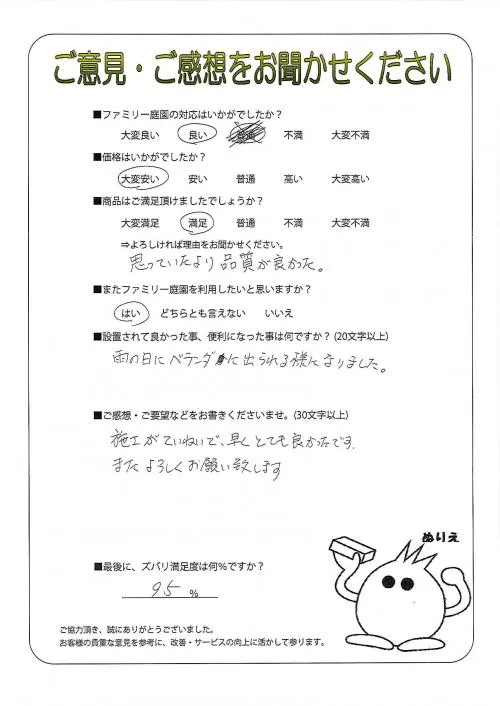 ご意見・ご感想をお聞かせください
■ファミリー庭園の対応はいかがでしたか？
大変良い 良い 普通 不満 大変不満
■価格はいかがでしたか？
大変安い 安い 普通 高い 大変高い
■商品はご満足頂けましたでしょうか？
大変満足 満足 普通 不満 大変不満
⇒よろしければ理由をお聞かせください。
思っていたより品質が良かった。
■またファミリー庭園を利用したいと思いますか？
はい どちらとも言えない いいえ
■設置されて良かった事、便利になった事は何ですか？(20文字以上)
雨の日にベランダに出られる様になりました。
■ご感想・ご要望などをお書きくださいませ。(30文字以上)
施工がていねいで、早くとても良かったです。
またよろしくお願い致します
ぬりえ
■最後に、ズバリ満足度は何％ですか？
95 %
ご協力頂き、誠にありがとうございました。
お客様の貴重な意見を参考に、改善・サービスの向上に活かして参ります。